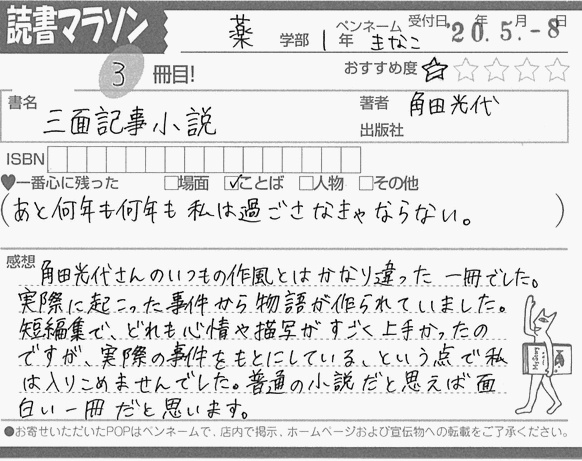 読書マラソン
薬 学部 1 年 ペンネーム まなこ 受付日 '20年 5.月 -8日
3 冊目! おすすめ度 ☆☆☆☆☆
書名 三面記事小説 著者 角田光代
出版社
ISBN
♥一番心に残った □場面 ☑ことば □人物 □その他
(あと何年も何年も私は過ごさなきゃならない。)
感想 角田光代さんのいつもの作風とはかなり違った一冊でした。
実際に起こった事件から物語が作られていました。
短編集で、どれも心情や描写がすごく上手かったの
ですが、実際の事件をもとにしている、という点で私
は入りこめませんでした。普通の小説だと思えば面
白い一冊だと思います。
●お寄せいただいたPOPはペンネームで、店内で掲示、ホームページおよび宣伝物への転載をご了承ください。